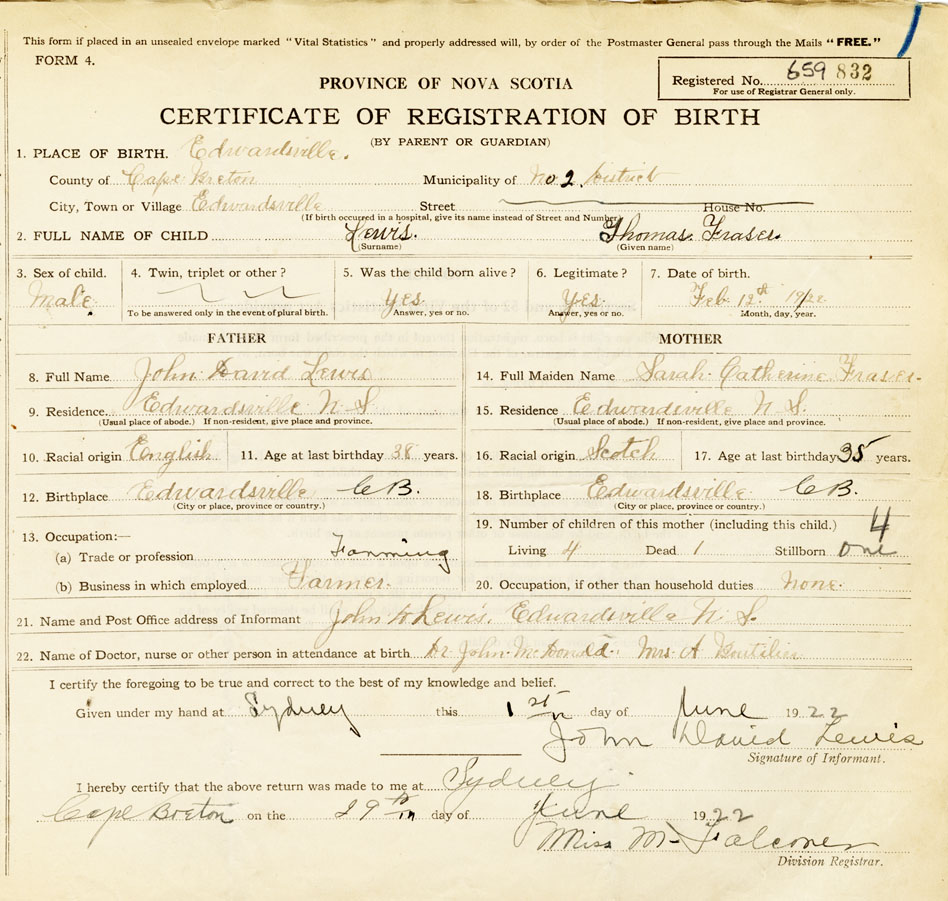 This form if placed in an unsealed envelope marked "Vital Statistics" and properly addressed will, by order of the Postmaster General pass through the Mails "FREE."
FORM 4.
Registered No. 659 832
For use of Registrar General only.
PROVINCE OF NOVA SCOTIA
CERTIFICATE OF REGISTRATION OF BIRTH
(BY PARENT OR GUARDIAN)
1. PLACE OF BIRTH. Edwardsville.
County of Cape Breton Municipality of No 2. District
City, Town or Village Edwardsville Street House No.
(If birth occurred in a hospital, give its name instead of Street and Number)
2. FULL NAME OF CHILD Lewis. Thomas Fraser
(Surname) (Given name)
3. Sex of child. 4. Twin, triplet or other? 5. Was the child born alive? 6. Legitimate? 7. Date of birth.
Male Yes Yes Feb 12th 1922
To be answered only in the event of plural birth. Answer, yes or no. Answer, yes or no. Month, day, year.
FATHER MOTHER
8. Full Name John David Lewis 14. Full Maiden Name Sarah Catherine Fraser
9. Residence Edwardsville N S 15. Residence Edwardsville N. S.
(Usual place of abode.) If non-resident, give place and province. (Usual place of abode.) If non-resident, give place and province.
10. Racial origin English 11. Age at last birthday 38 years. 16. Racial origin Scotch 17. Age at last birthday 35 years.
12. Birthplace Edwardsville C B. 18. Birthplace Edwardsville C B.
(City or place, province or country.) (City or place, province or country.)
13. Occupation:— 19. Number of children of this mother (including this child.) 4
(a) Trade or profession Farming Living 4 Dead 1 Stillborn one
(b) Business in which employed Farmer 20. Occupation, if other than household duties None.
21. Name and Post Office address of Informant John D Lewis. Edwardsville N. S.
22. Name of Doctor, nurse or other person in attendance at birth Dr John McDonald. Mrs. A Boutilier
I certify the foregoing to be true and correct to the best of my knowledge and belief.
Given under my hand at Sydney this 1st day of June 1922
John David Lewis
Signature of Informant.
I hereby certify that the above return was made to me at Sydney
Cape Breton on the 29th day of June 1922
Miss M. Falconer
Division Registrar.